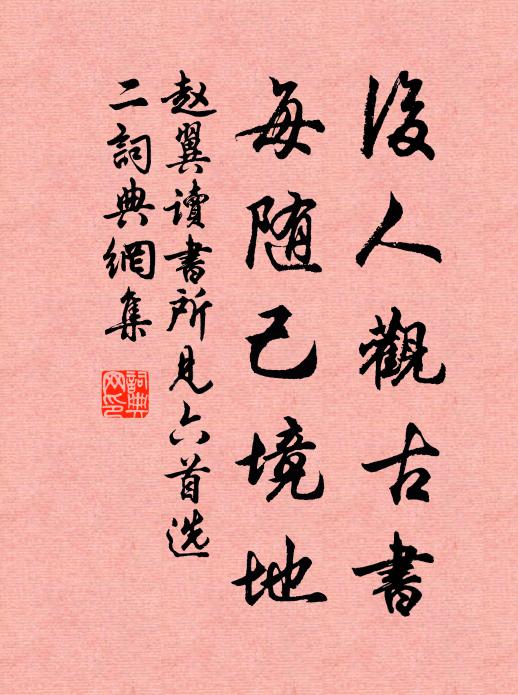 後人觀古書
每随己境地
赵翼讀書所見六首选
二詞典網集
詞典网印